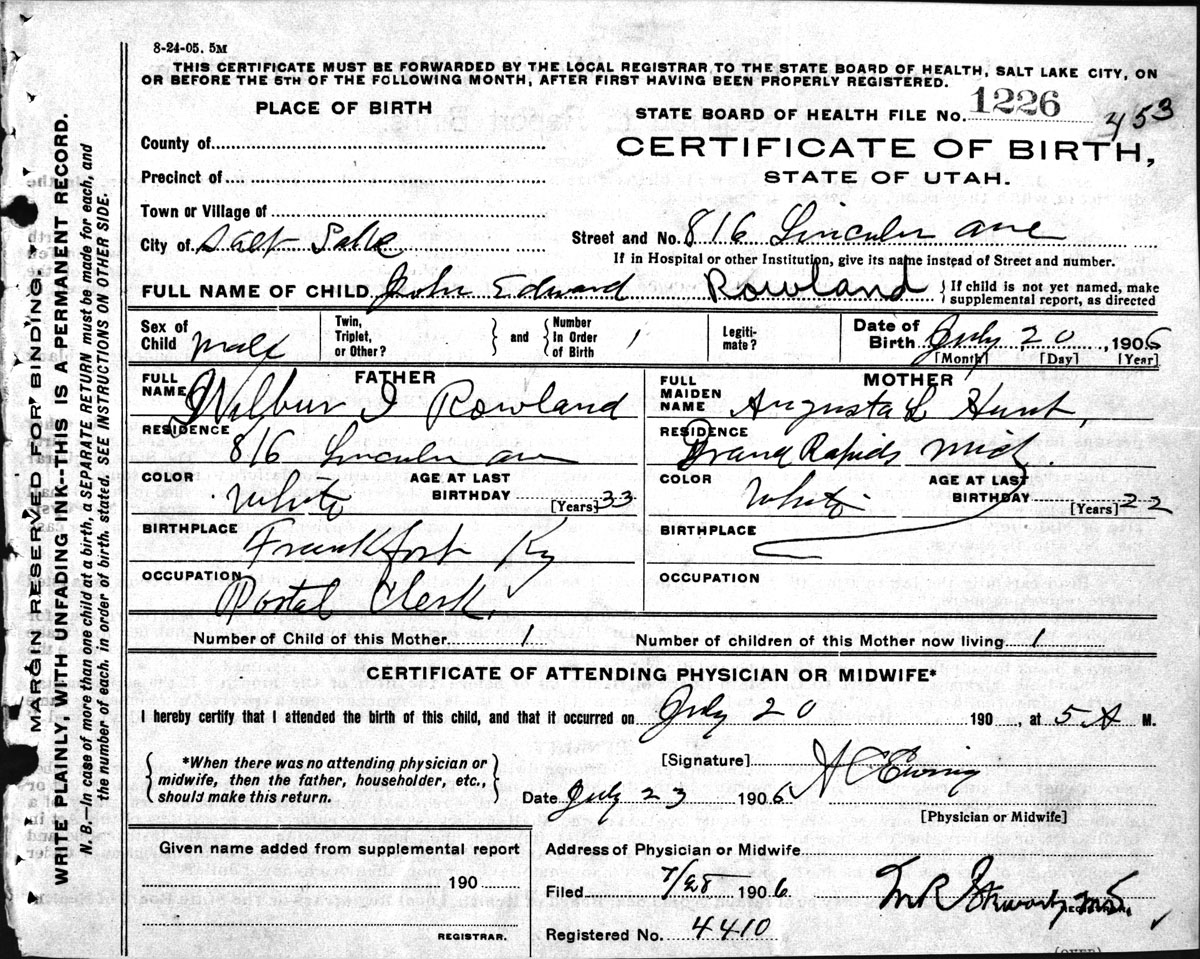 8-24-05. 5M
THIS CERTIFICATE MUST BE FORWARDED BY THE LOCAL REGISTRAR TO THE STATE BOARD OF HEALTH, SALT LAKE CITY, ON
OR BEFORE THE 5TH OF THE FOLLOWING MONTH, AFTER FIRST HAVING BEEN PROPERLY REGISTERED.
PLACE OF BIRTH
STATE BOARD OF HEALTH FILE No. 1226 453
County of
CERTIFICATE OF BIRTH,
Precinct of
STATE OF UTAH.
Town or Village of
City of Salt Lake Street and No. 816 Lincoln ave
If in Hospital or other Institution, give its name instead of Street and number.
FULL NAME OF CHILD John Edward Rowland { If child is not yet named, make
supplemental report, as directed
Sex of Child Male Twin, Triplet, or Other? } and { Number In Order of Birth 1 Legitimate? Date of Birth July 20, 1906
[Month] [Day] [Year]
FATHER
FULL NAME Wilbur I Rowland
RESIDENCE
816 Lincoln ave
COLOR White AGE AT LAST BIRTHDAY 33 [Years]
BIRTHPLACE
Frankfort Ky
OCCUPATION
Postal Clerk.
MOTHER
FULL MAIDEN NAME Augusta L Hunt,
RESIDENCE
Grand Rapids Mich.
COLOR White AGE AT LAST BIRTHDAY 22 [Years]
BIRTHPLACE
OCCUPATION
Number of Child of this Mother 1 Number of children of this Mother now living 1
CERTIFICATE OF ATTENDING PHYSICIAN OR MIDWIFE*
I hereby certify that I attended the birth of this child, and that it occurred on July 20 190 , at 5 A M.
{ *When there was no attending physician or
midwife, then the father, householder, etc.,
should make this return. }
[Signature]
Date July 23 1906
[Physician or Midwife]
Given name added from supplemental report
190
REGISTRAR.
Address of Physician or Midwife
Filed 7/28 1906
REGISTRAR.
Registered No. 4410
(OVER)
MARGIN RESERVED FOR BINDING
WRITE PLAINLY, WITH UNFADING INK--THIS IS A PERMANENT RECORD.
N. B.—In case of more than one child at a birth, a SEPARATE RETURN must be made for each, and
the number of each, in order of birth, stated. SEE INSTRUCTIONS ON OTHER SIDE.